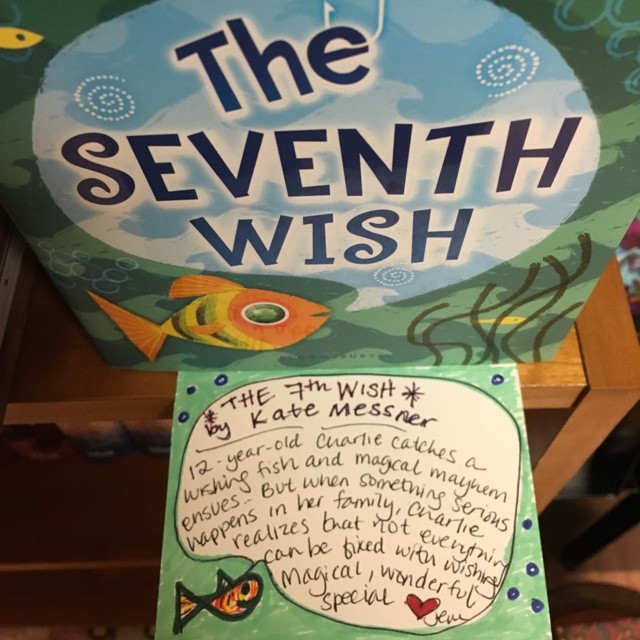 The
SEVENTH
WISH
BLOOMSBURY
*THE 7th WISH*
by Kate Messner
12-year-old Charlie catches a
wishing fish and magical mayhem
ensues. But when something serious
happens in her family, Charlie
realizes that not everything
can be fixed with wishing
Magical, wonderful
special
Jen